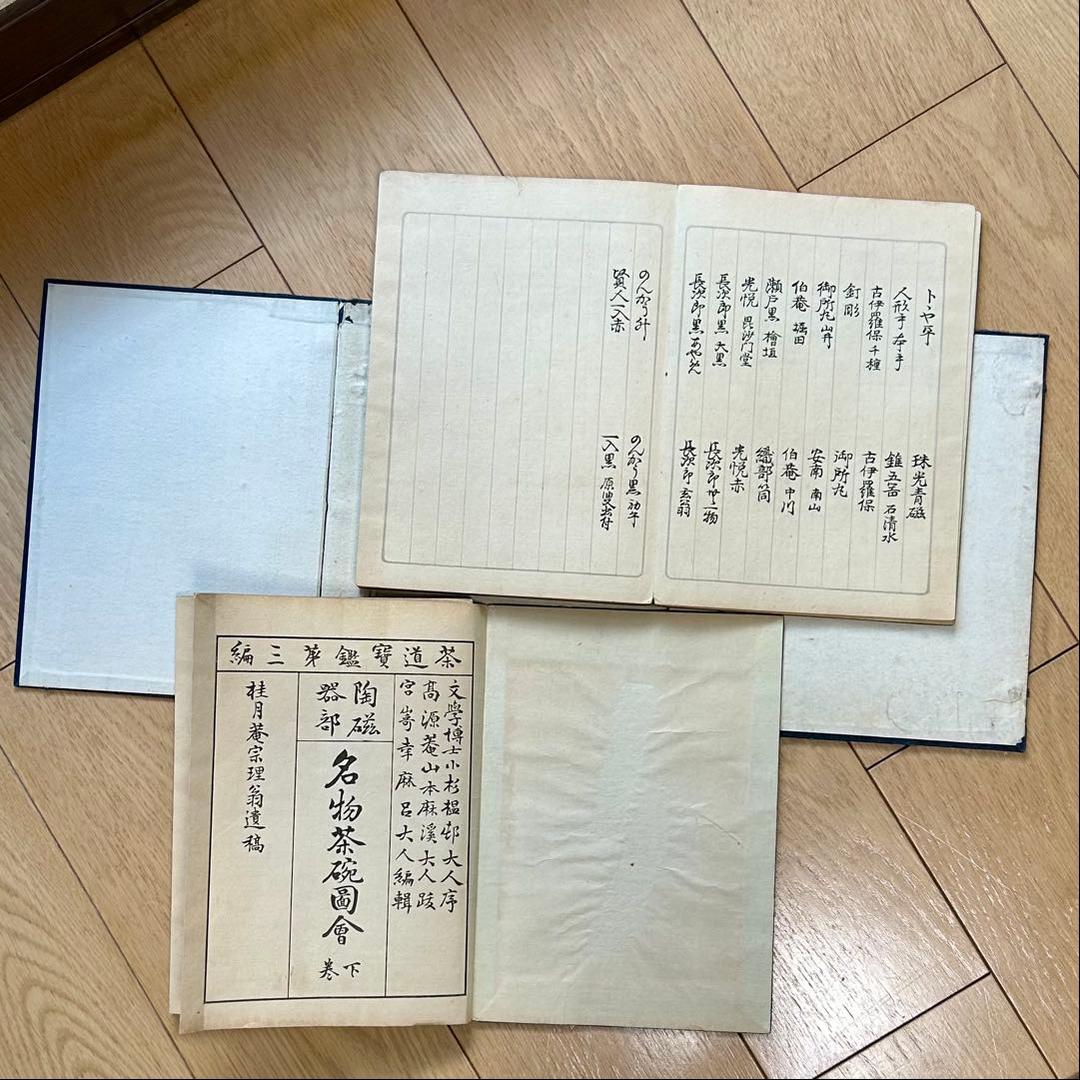 トヽヤ 平
人形手 本手
古伊羅保 千種
釘彫
御所丸 山井
伯菴 堀田
瀬戸黒 檜垣
光悦 毘沙門堂
長次郎黒 大黒
長次郎黒 あやめ
珠光青磁
錐五器 石清水
古伊羅保
御所丸
安南 南山
伯菴 中川
織部筒
光悦赤
長次郎 廿一物
長次郎 玄翁
のんかう 升
賢人一入赤
のんかう黒 初午
一入黒 原叟書付
茶道寶鑑第三編
文學博士小杉榲邨大人序
高源菴山本麻溪大人跋
宮嵜幸麻呂大人編輯
陶磁
器部
名物茶碗圖會
下卷
桂月菴宗理翁遺稿